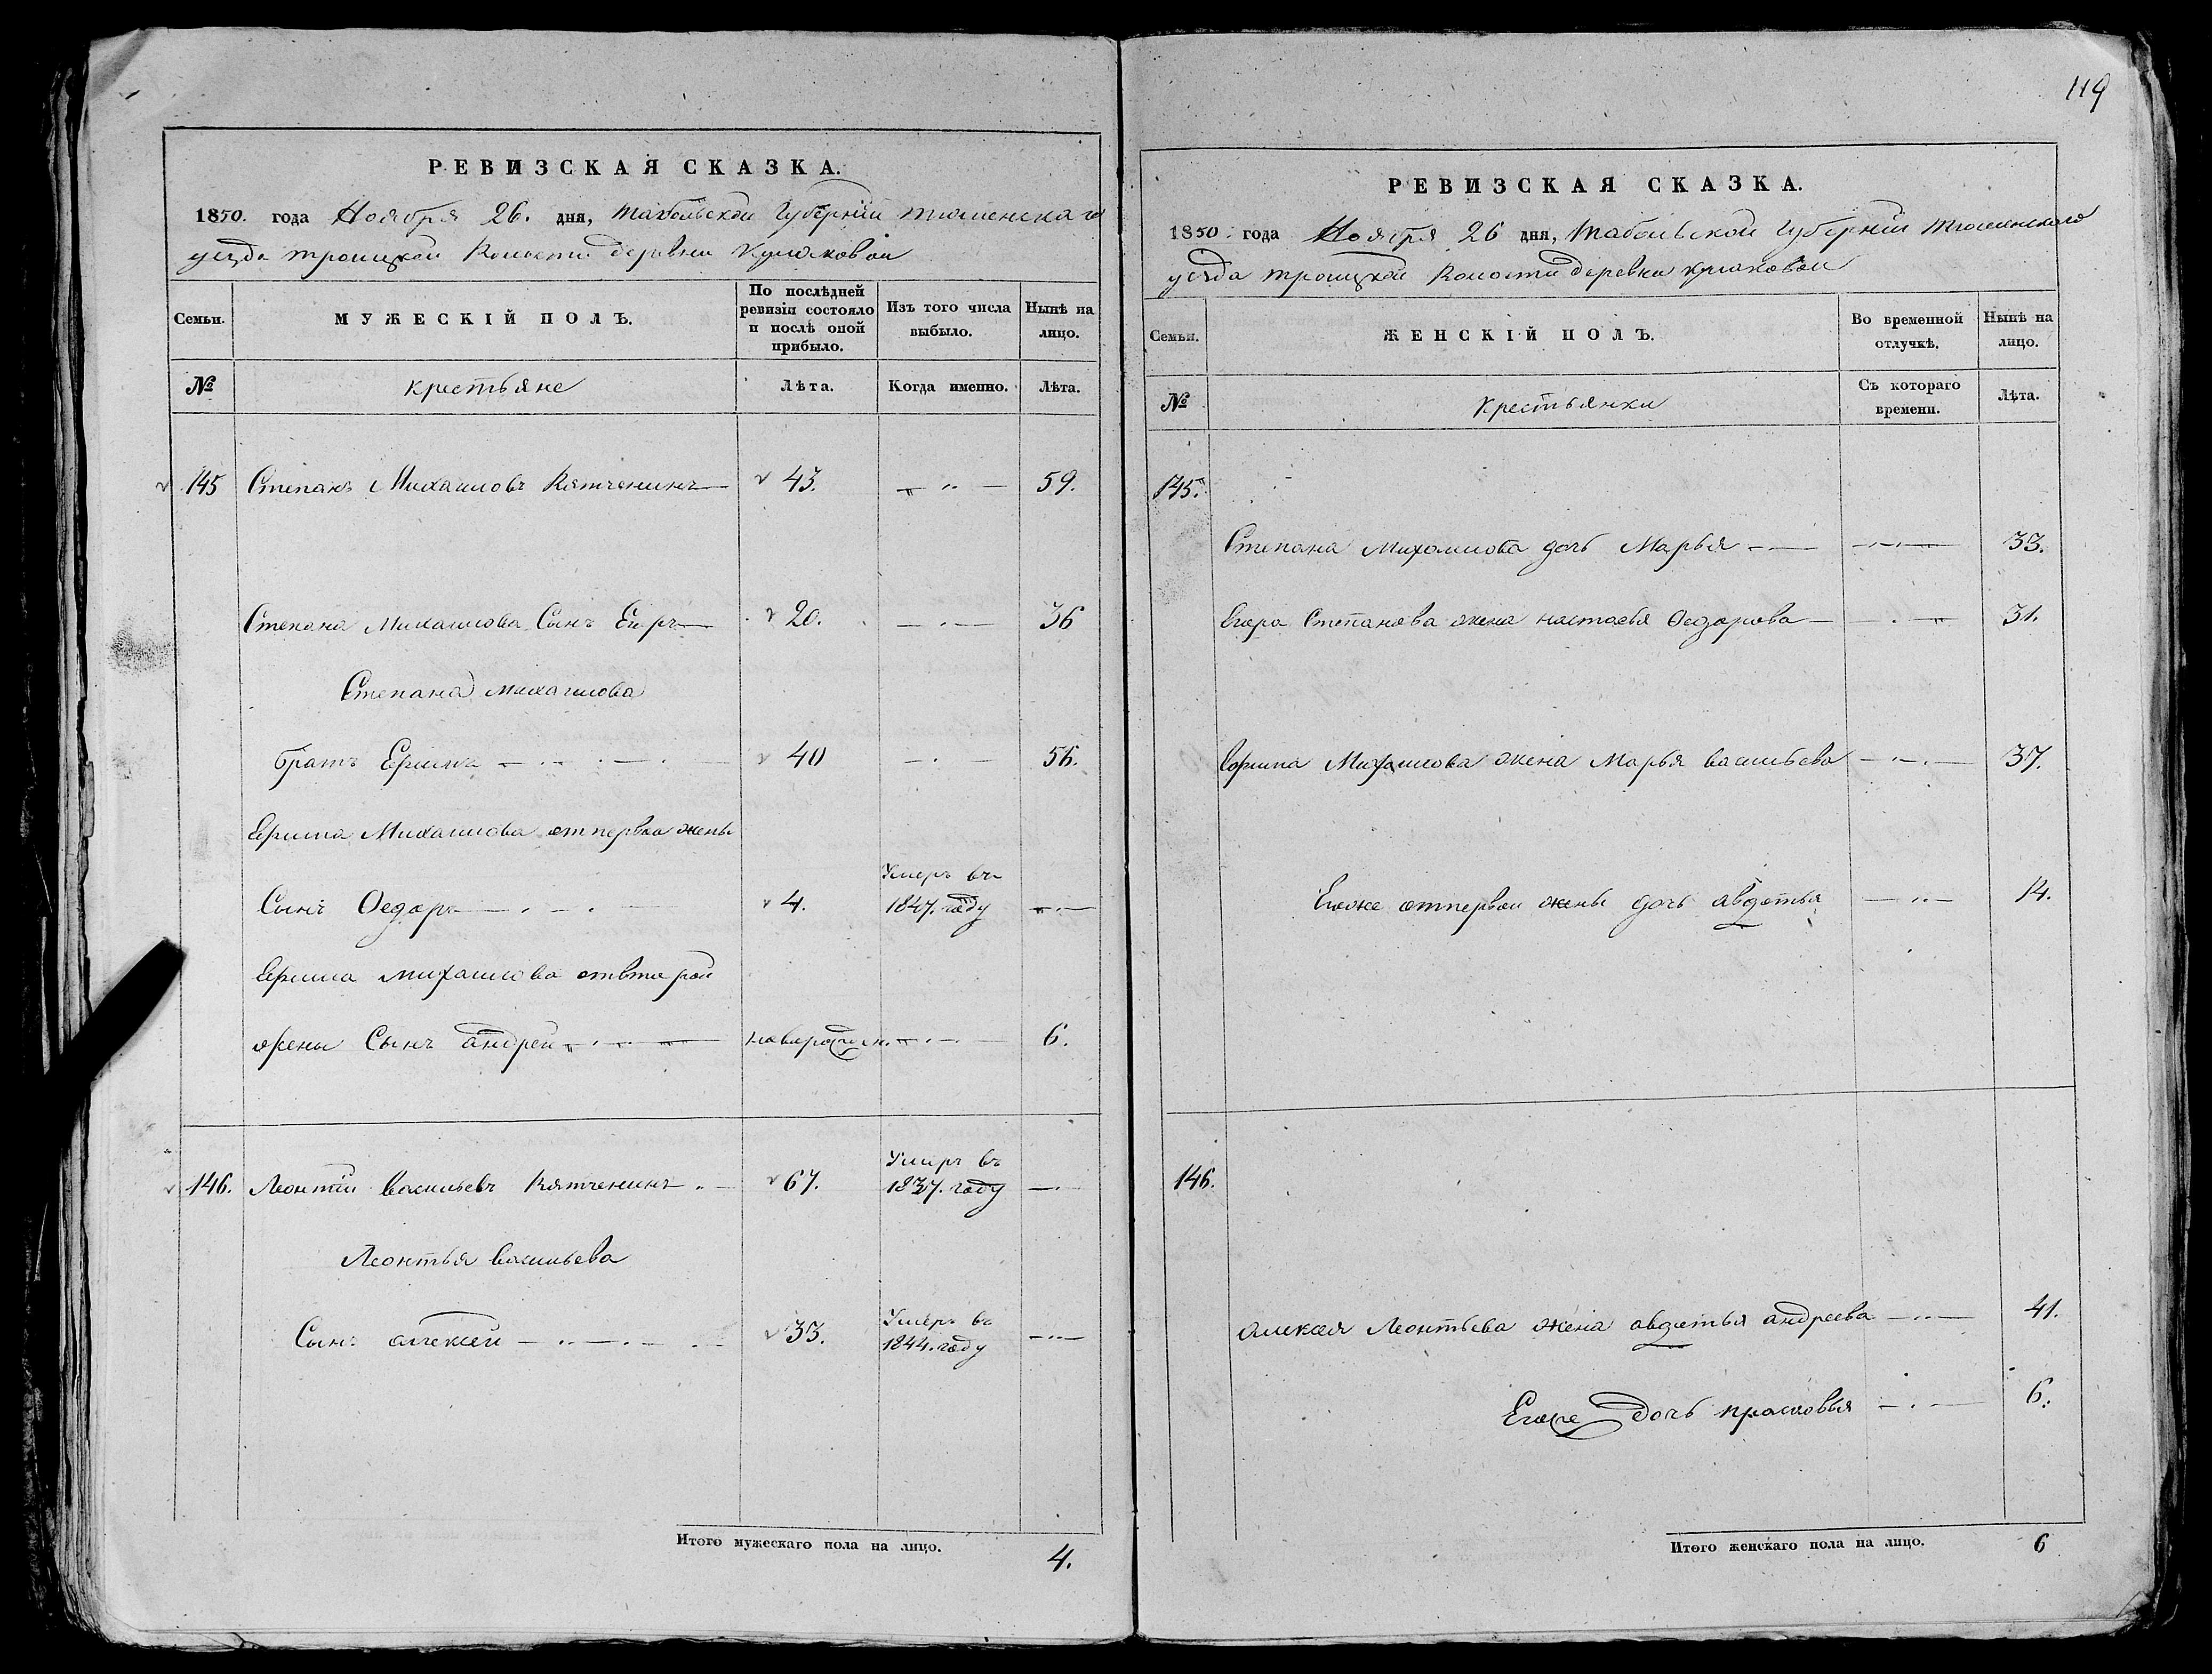 119
РЕВИЗСКАЯ СКАЗКА.
1850. года Ноября 26. дня, Табольской Губернiи тюменскаго
уезда троицкой волости деревни Кулаковой
Семьи. МУЖЕСКІЙ ПОЛЪ. По послѣдней ревизіи состояло и послѣ оной прибыло. Изъ того числа выбыло. Нынѣ на лицо.
№ крестьяне Лѣта. Когда именно. Лѣта.
145 Степанъ Михаиловъ Кятченинъ 43. 59.
Степана Михаилова Сынъ Егоръ 20. 36
Степана Михаилова
братъ Ефимъ 40 56.
Ефима Михаилова отпервои жены
Сынъ Федоръ 4. Умеръ въ 1847. году
Ефима Михаилова отвторой
жены Сынъ андреи новорожден. 6.
146. Леонтiи васильевъ Кятченинъ 67. Умиръ въ 1837. году
Леонтья васильева
Сынъ алексеи 33. Умеръ въ 1844. году
Итого мужескаго пола на лицо. 4.
РЕВИЗСКАЯ СКАЗКА.
1850. года Ноября 26 дня, Табольской Губернiи тюменскаго
уезда троицкой волости деревни кулаковой
Семьи. ЖЕНСКІЙ ПОЛЪ. Во временной отлучкѣ. Нынѣ на лицо.
№ Крестьянки Съ котораго времени. Лѣта.
145.
Степана Михаилова дочь Марья 33.
Егора Степанова жена настасья Федорова 31.
Ефима Михаилова жена Марья васильева 37.
Егоже отпервои жены дочь авдотья 14.
146.
алексея Леонтьева жена авдотья андреева 41.
Егоже дочь прасковья 6.
Итого женскаго пола на лицо. 6